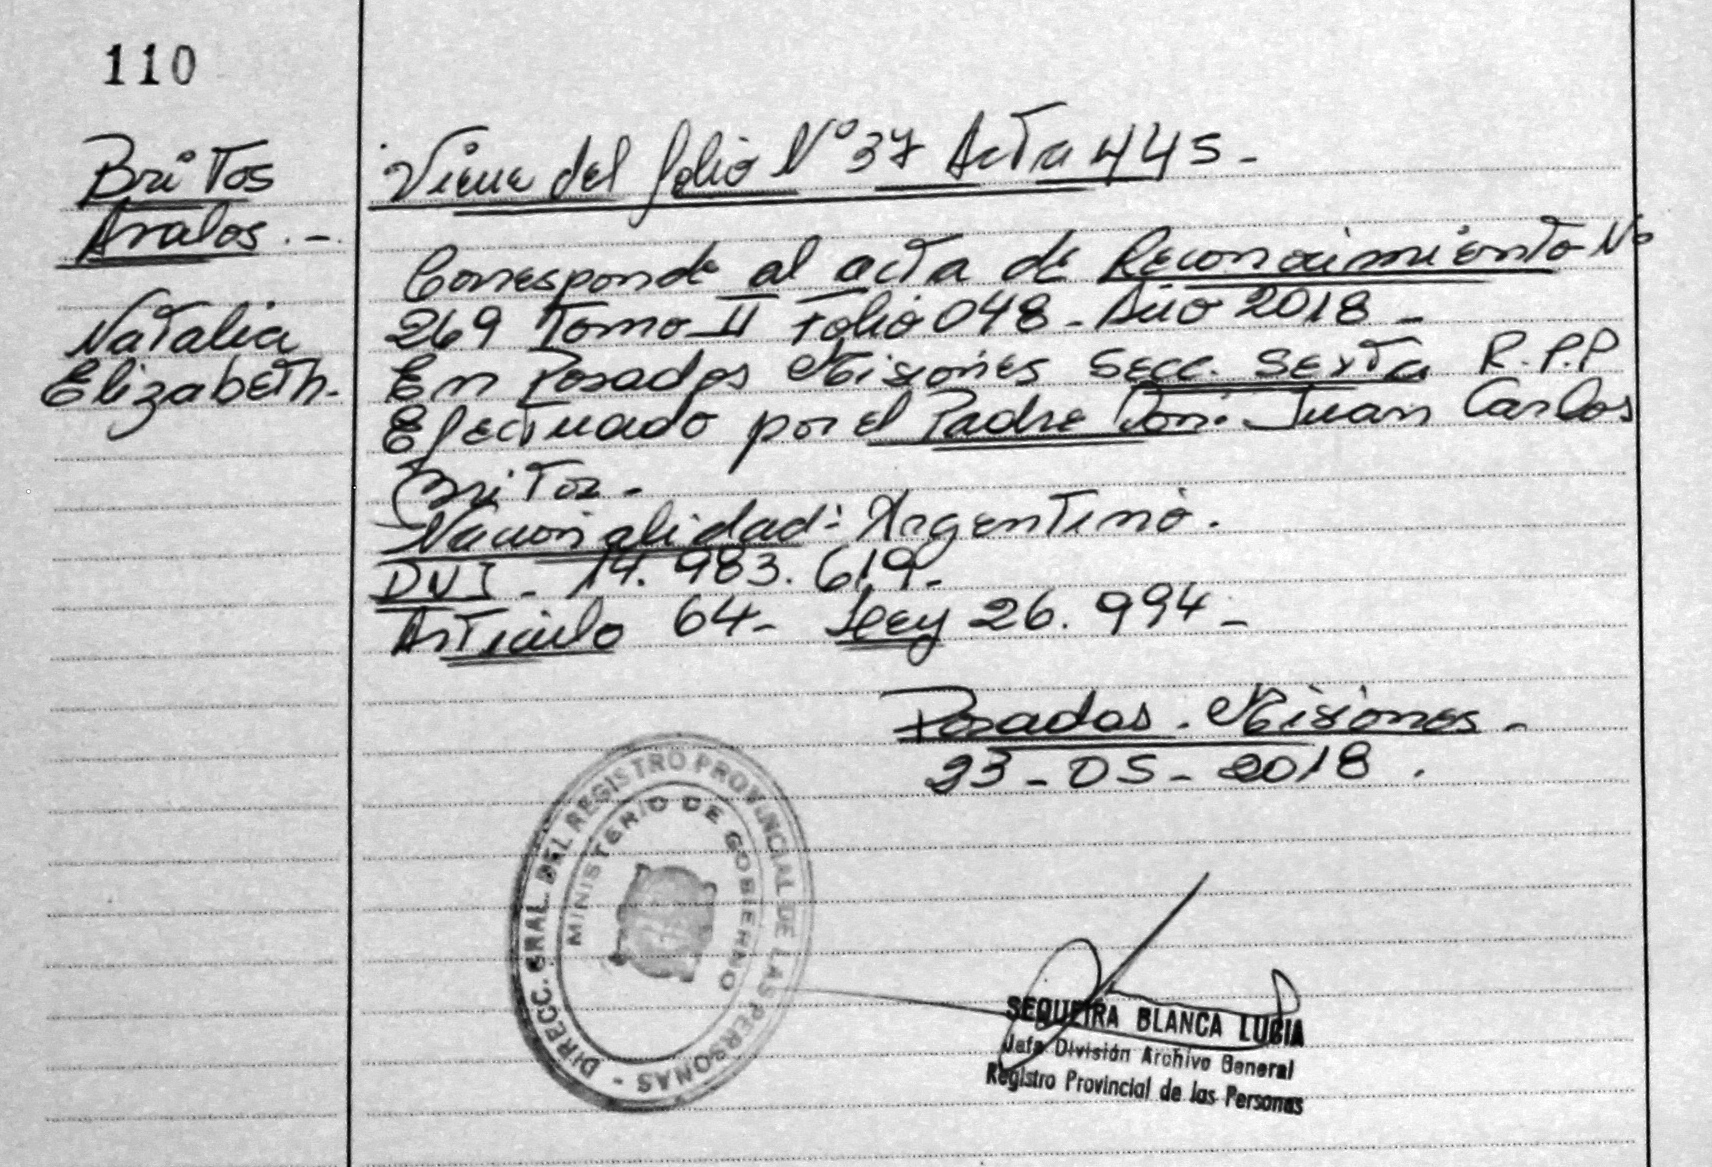 110
Britos
Avalos. -
Natalia
Elizabeth.
Viene del folio N° 37 Acta 445 -
Corresponde al acta de Reconocimiento No
269 Tomo II Folio 048 - Año 2018 -
En Posadas Misiones Secc. Sexta R.P.P
Efectuado por el Padre Don: Juan Carlos
Britos -
Nacionalidad: Argentino.
DNI - 14.983.619 -
Articulo 64 - Ley 26.994 -
Posadas. Misiones -
23 - 05 - 2018.
DIRECC. GRAL. DEL REGISTRO PROVINCIAL DE LAS PERSONAS -
MINISTERIO DE GOBIERNO
SEQUEIRA BLANCA LUCIA
Jefa División Archivo General
Registro Provincial de las Personas